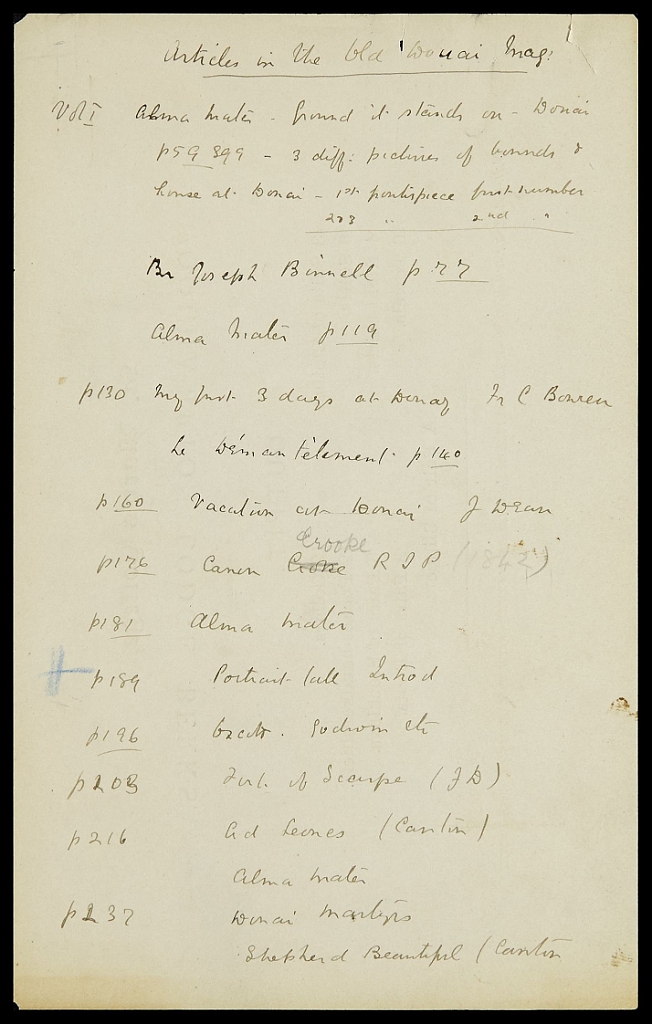 Articles in the Old Douai Mag:
Vol I Alma Mater - Ground it stands on - Douai
p59 399 - 3 diff: pictures of bounds &
house at Douai - 1st frontispiece first number
203 " 2nd "
Br Joseph Binnell p 77
Alma Mater p119
p130 My first 3 days at Douay Fr C Bowen
Le Démantèlement p 140
p160 Vacation at Douai J Dean
Crooke
p176 Canon R I P (1842)
p181 Alma Mater
p189 Portrait Introd
p196 Godwin etc
p203 of Scarpe (JD)
p216 Ad Leones (Canton)
Alma Mater
p237 Douai Martyrs
Shepherd Beautiful (Canton